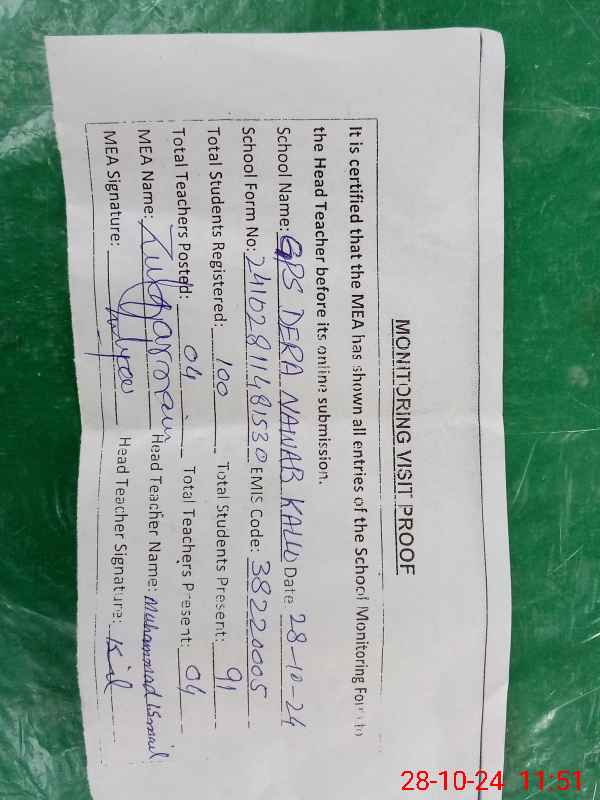 MONITORING VISIT PROOF
It is certified that the MEA has shown all entries of the School Monitoring Form to
the Head Teacher before its online submission.
School Name: GPS DERA NAWAB KALLU Date 28-10-24
School Form No: 24102811481530 EMIS Code: 38220005
Total Students Registered: 100 Total Students Present: 91
Total Teachers Posted: 04 Total Teachers Present: 04
MEA Name: Head Teacher Name: Muhammad Ismail
MEA Signature: Head Teacher Signature:
28-10-24 11:51